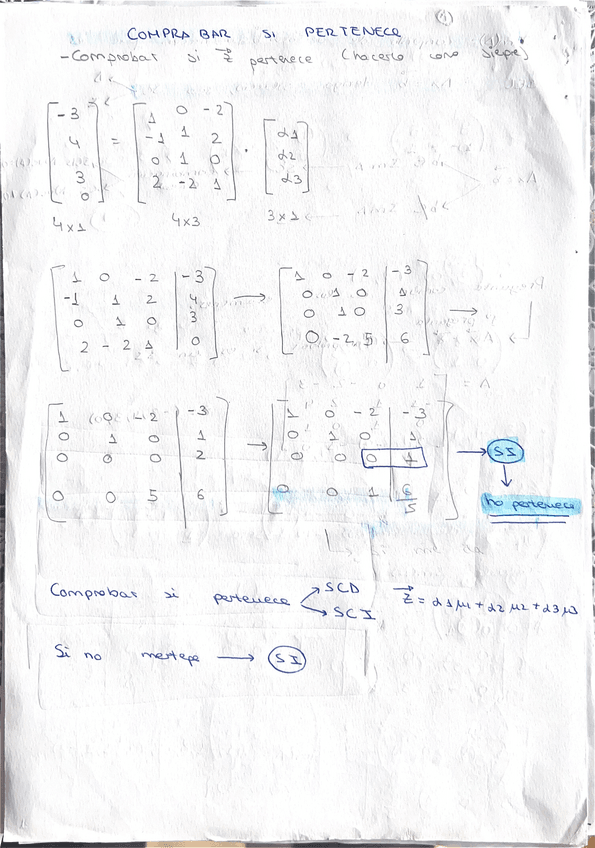 (1)
COMPRABAR SI PERTENECE
-Comprobar si z⃗ pertenece (hacerlo como siepe)
[-3; 4; 3; 0] = [1 0 -2; -1 1 2; 0 1 0; 2 -2 1] · [α1; α2; α3]
4x1 4x3 3x1
[1 0 -2 | -3; -1 1 2 | 4; 0 1 0 | 3; 2 -2 1 | 0] → [1 0 -2 | -3; 0 1 0 | 1; 0 1 0 | 3; 0 -2 5 | 6] →
[1 0 -2 | -3; 0 1 0 | 1; 0 0 0 | 2; 0 0 5 | 6] → [1 0 -2 | -3; 0 1 0 | 1; 0 0 0 | 1; 0 0 1 | 6/5] → SI
↓
no pertenece
Comprobar si pertenece → SCD z⃗ = α1μ1 + α2μ2 + α3μ3
→ SCI
Si no → SI